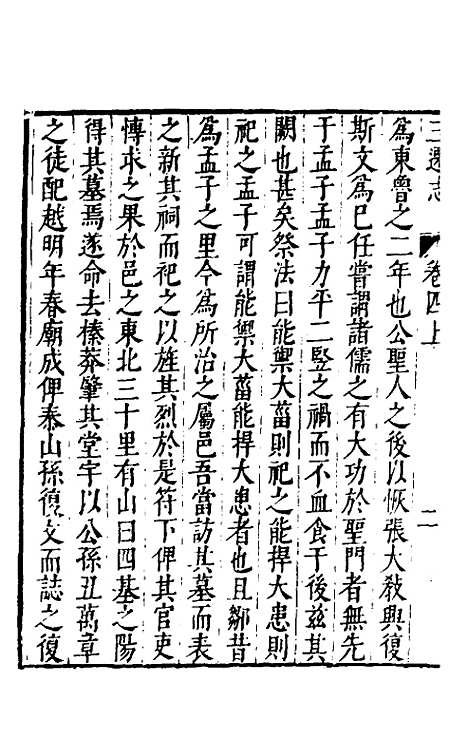 三遷志 卷四上 二
爲東魯之二年也公聖人之後以恢張大教興復
斯文爲已任嘗謂諸儒之有大功於聖門者無先
于孟子孟子力平二竪之禍而不血食于後兹其
闕也甚矣祭法曰能禦大菑則祀之能捍大患則
祀之孟子可謂能禦大菑能捍大患者也且鄒昔
爲孟子之里今爲所治之屬邑吾當訪其墓而表
之新其祠而祀之以旌其烈於是符下俾其官吏
博求之果於邑之東北三十里有山曰四基之陽
得其墓焉遂命去榛莽肇其堂宇以公孫丑萬章
之徒配越明年春廟成俾泰山孫復文而誌之復